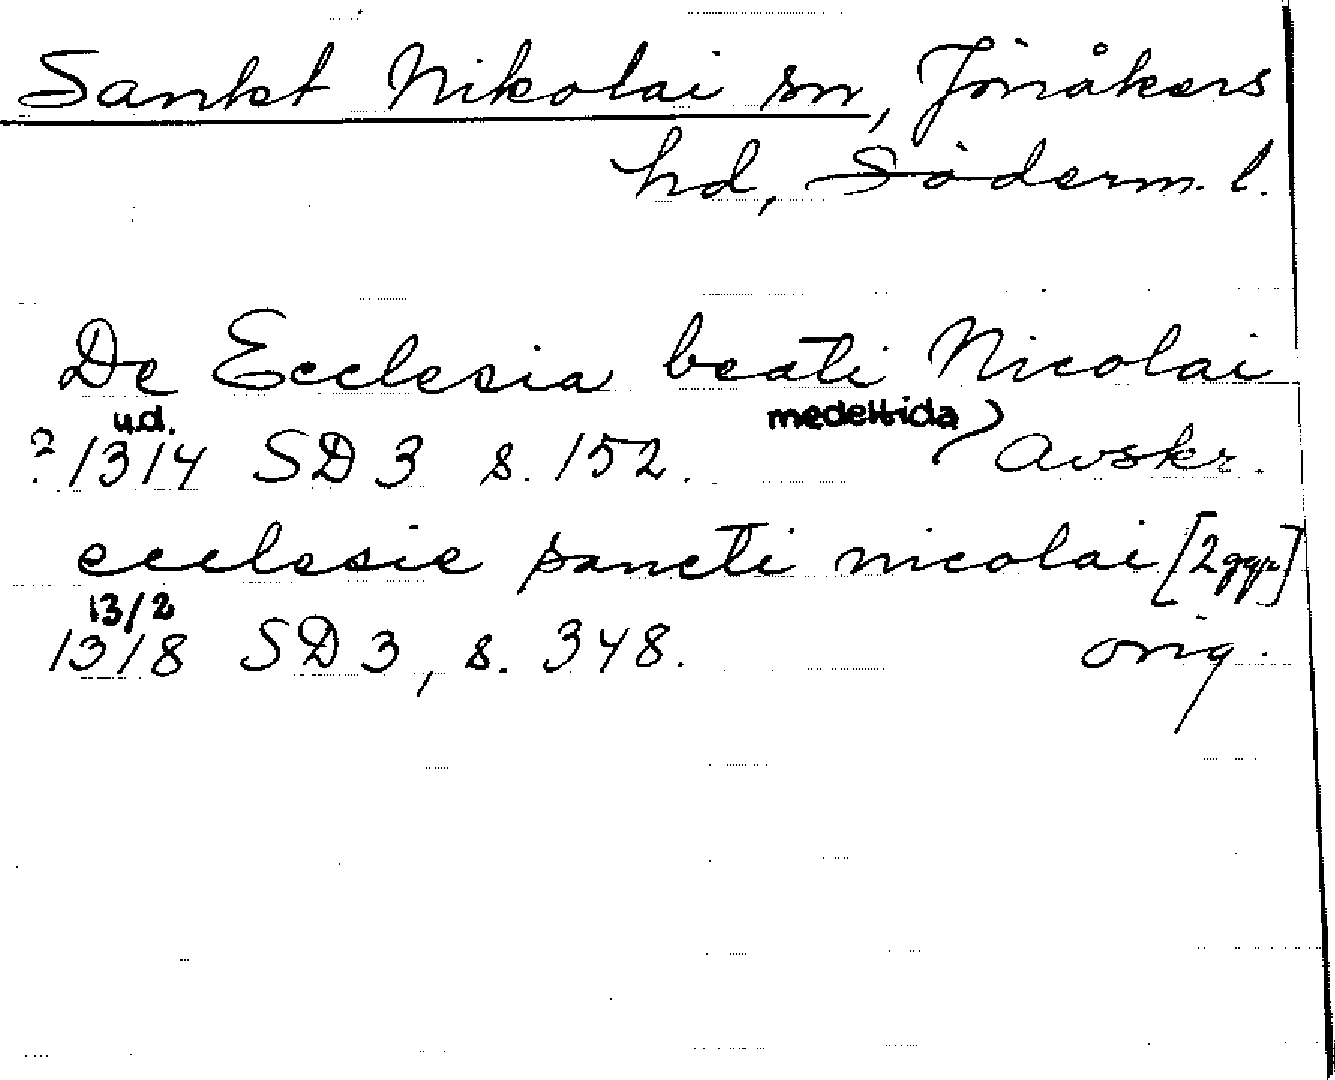 Sankt Nikolai sn, Jönåkers
hd, Söderm. l.
De Ecclesia beati Nicolai
u.d. medeltida
? 1314 SD 3 s. 152. Avskr.
ecclesie sancti nicolai [2 ggr]
13/2
1318 SD 3, s. 348. orig.